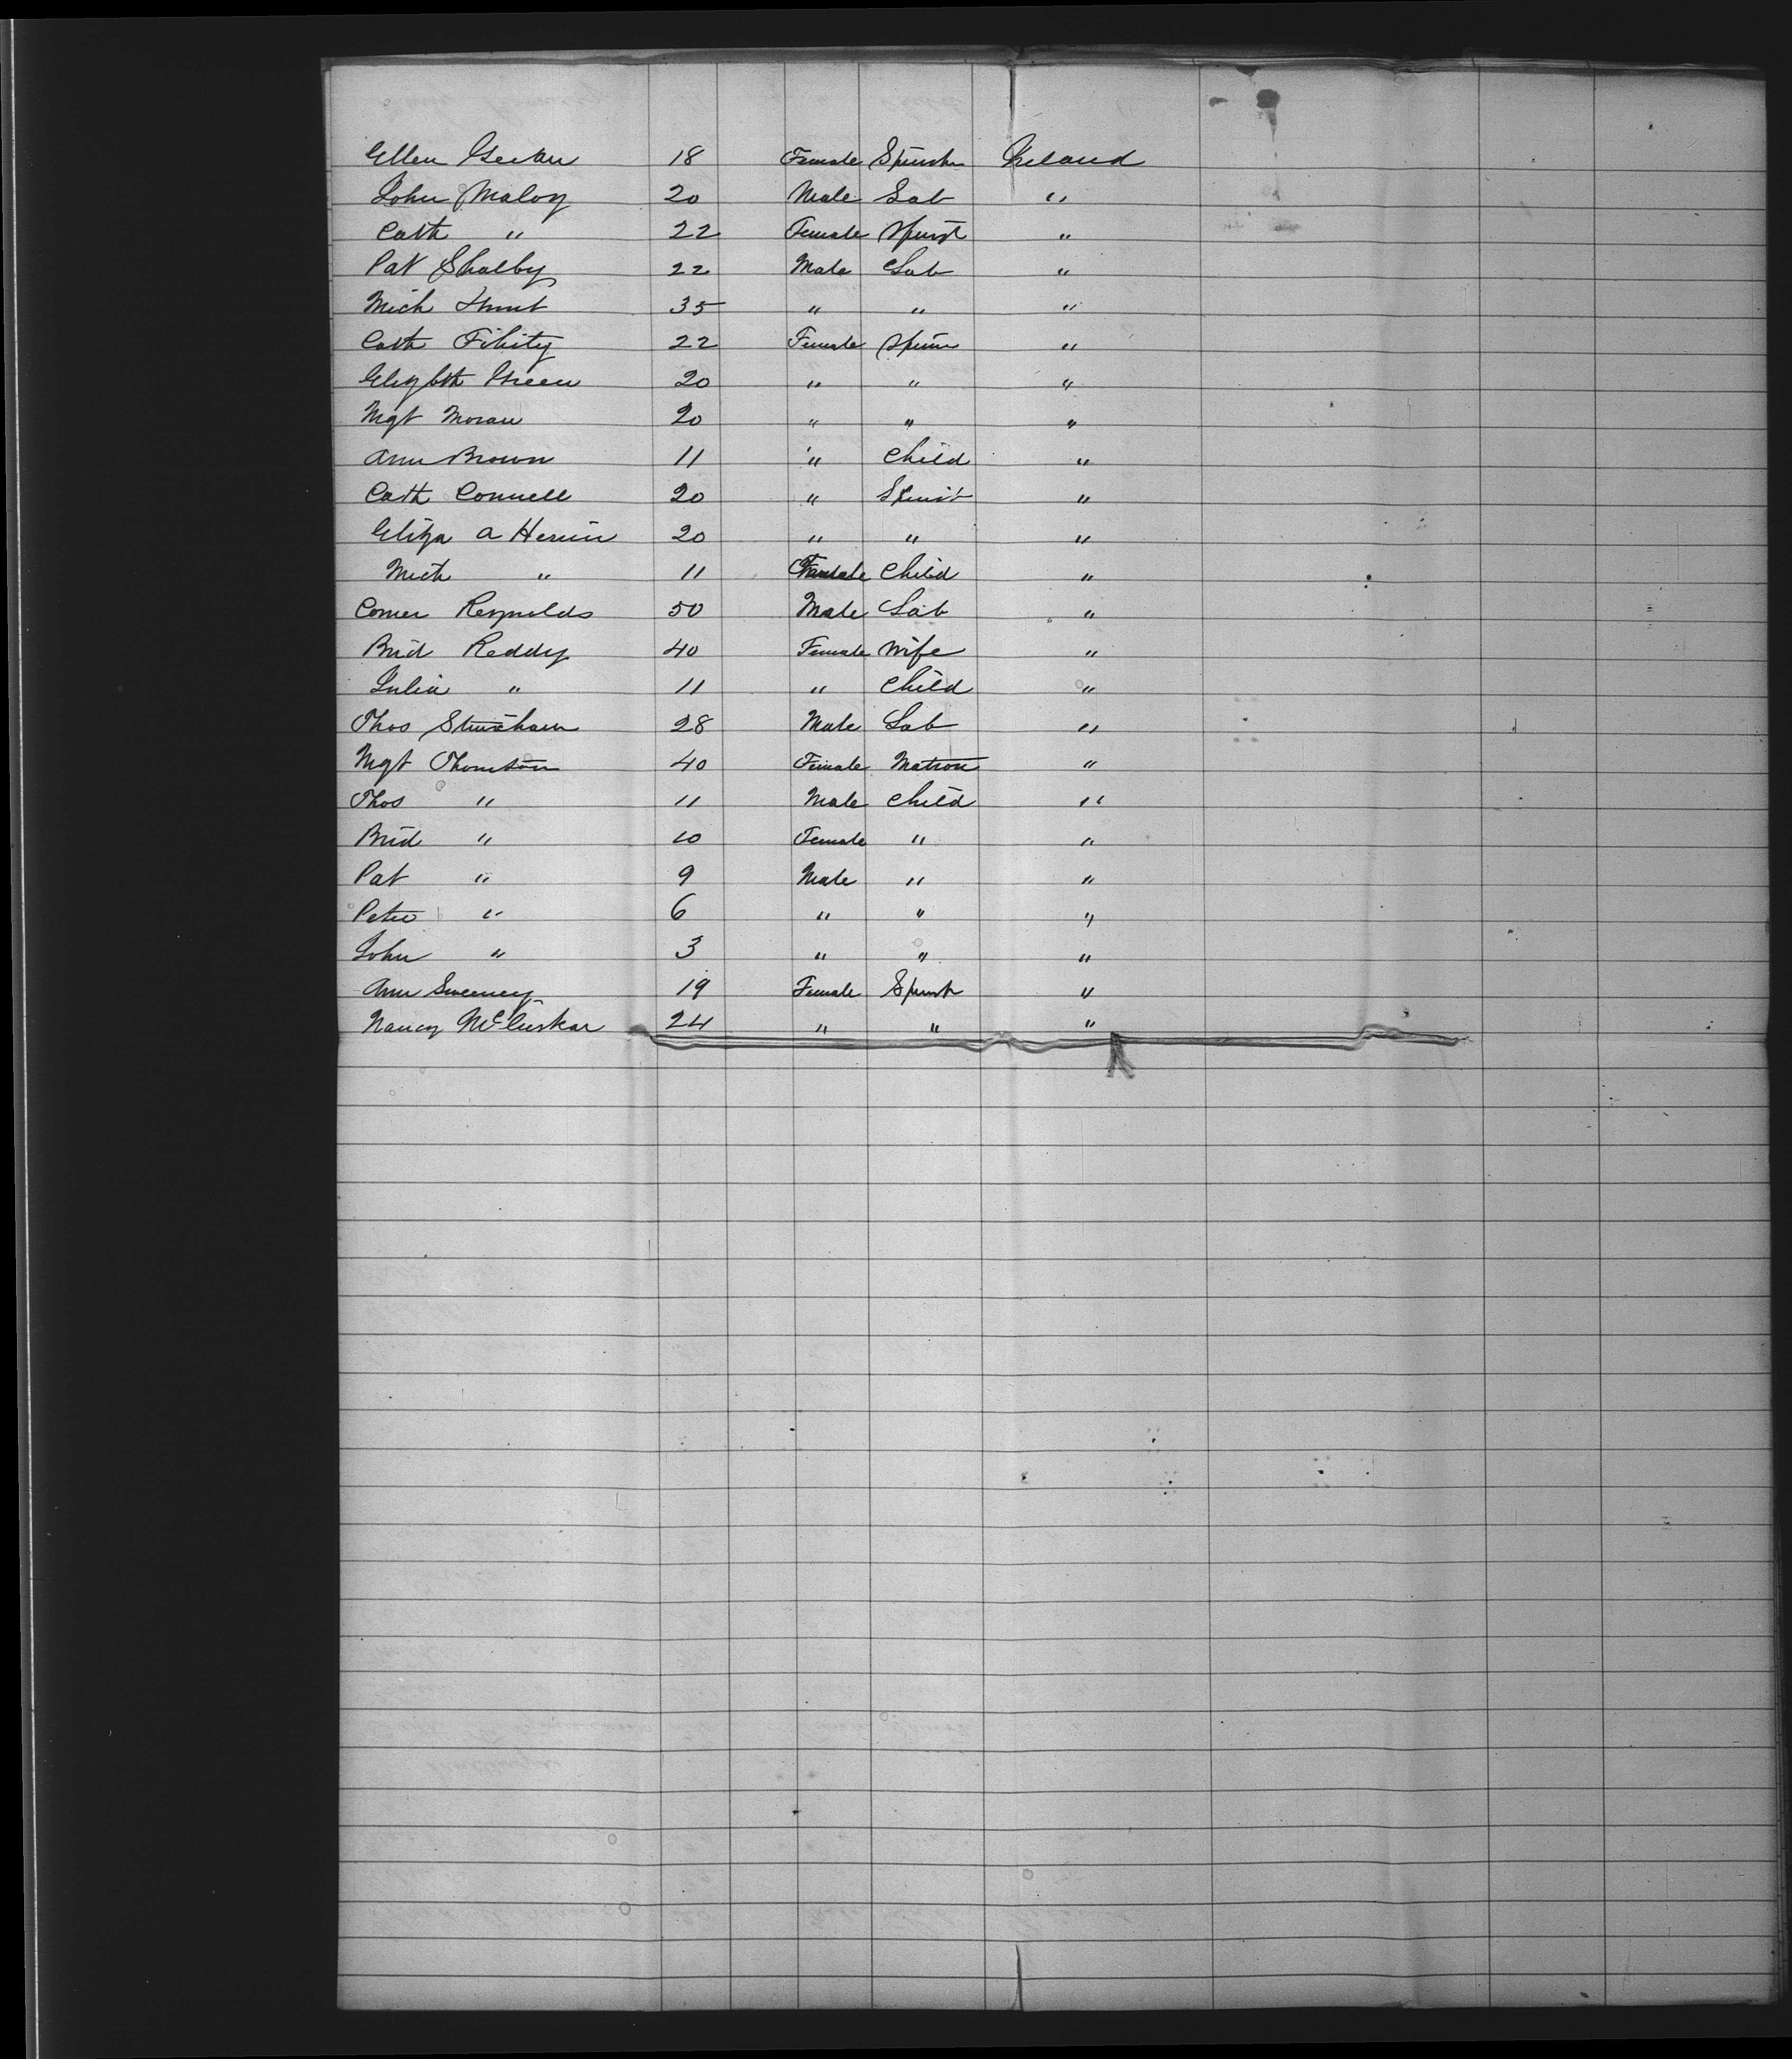 Ellen 18 Female Spinster Ireland
John Maloy 20 Male Lab "
Cath " 22 Female Spinst "
Pat Shalby 22 Male Lab "
Mich Hunt 35 " " "
Cath 22 Female Spinn "
Elizbth Green 20 " " "
Mgt Moran 20 " " "
Ann Brown 11 " Child "
Cath Connell 20 " Spinst "
Eliza A 20 " " "
Mich " 11 Child "
Comer Reynolds 50 Male Lab "
Brid Reddy 40 Female Wife "
Julia " 11 " Child "
Thos 28 Male Lab "
Mgt Thomson 40 Female Matron "
Thos " 11 Male Child "
Brid " 10 Female " "
Pat " 9 Male " "
Peter " 6 " " "
John " 3 " " "
Ann Sweeney 19 Female Spinst "
Nancy McCuskar 24 " " "